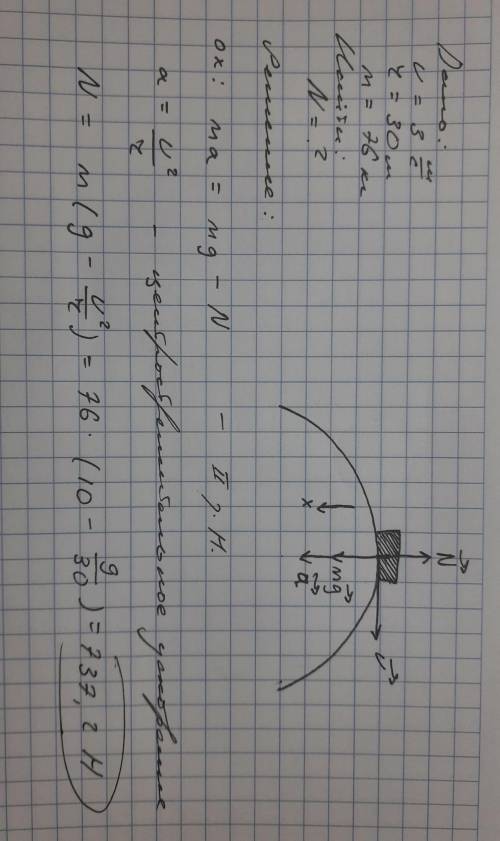 Дано:
υ = 3 м/с
r = 30 м
m = 76 кг
Найти:
N = ?
Решение:
ox: ma = mg - N - II з. Н.
a = υ²/r - центростремительное ускорение
N = m(g - υ²/r) = 76 · (10 - 9/30) = 737,2 Н
N
υ
x
mg
a